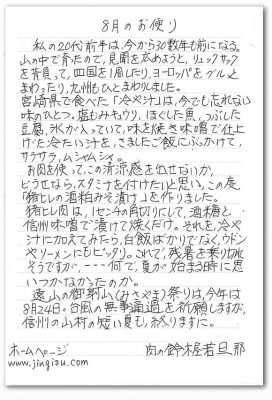 8月のお便り
私の20代前半は、今から30数年も前になる。
山の中で育たので、見聞を広めようと、リュックサック
を背負って、四国を1周したり、ヨーロッパをグルッと
まわったり、九州もひとまわりしました。
宮崎県で食べた「冷や汁」は、今でも忘れない
味のひとつ。塩もみキウリ、ほぐした魚、つぶした
豆腐、氷が入っていて、味を焼き味噌で仕上
げた冷たい汁を、さましたご飯にぶっかけて、
サラサラ、ムシャムシャ。
お肉を使って、この清涼感を出せないか、
どうせなら、スタミナを付けたいと思い、この度
「猪ヒレの酒粕みそ漬け」を作りました。
猪ヒレ肉は、1センチの角切りにして、酒糟と
信州味噌で漬けて焼くだけ。それを、冷や
汁に加えてみたら、白飯ばかりでなく、ウドン
やソーメンにもピッタリ。これで、残暑を乗り切れ
そうですが、----何で、夏が始まる時に思
いつかなかったのか。
遠山の御射山(みさやま)祭りは、今年は
8月24日。台風の無事通過を祈願しますが、
信州の山村の短い夏も、終りますに。
ホームページ 肉の鈴木屋若旦那
www.jingisu.com/